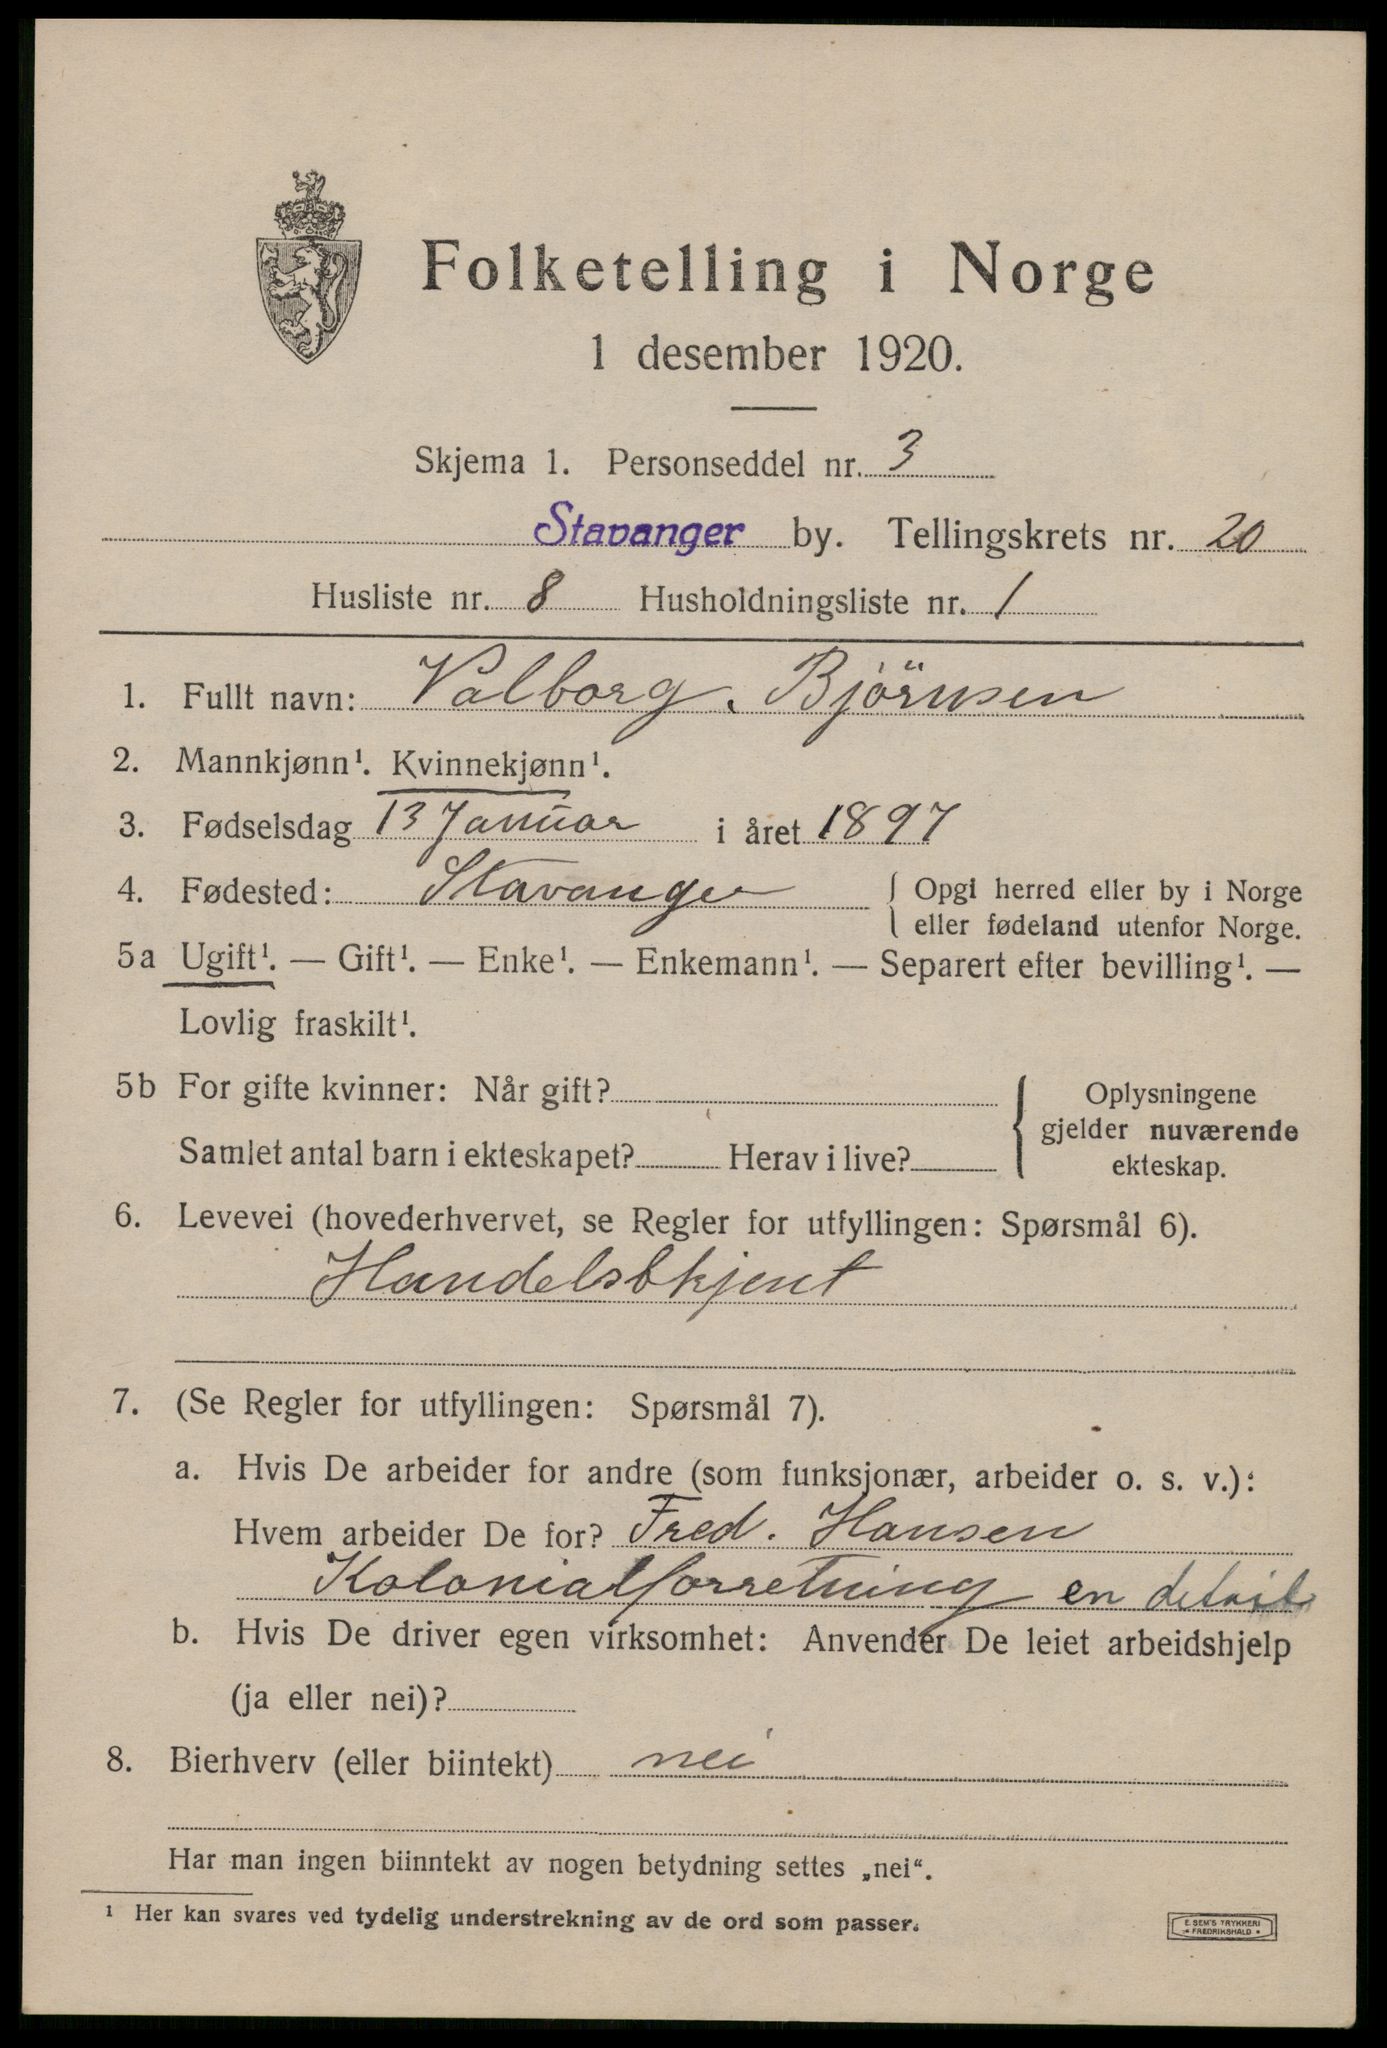 Folketelling i Norge
1 desember 1920.
Skjema 1. Personseddel nr. 3
Stavanger by. Tellingskrets nr. 20
Husliste nr. 8 Husholdningsliste nr. 1
1. Fullt navn: Valborg. Björnsen
2. Mannkjønn¹. Kvinnekjønn¹.
3. Fødselsdag 13 Januar i året 1897
4. Fødested: Stavanger { Opgi herred eller by i Norge
eller fødeland utenfor Norge.
5a Ugift¹. — Gift¹. — Enke¹. — Enkemann¹. — Separert efter bevilling¹. —
Lovlig fraskilt¹.
5b For gifte kvinner: Når gift? { Oplysningene
gjelder nuværende
Samlet antal barn i ekteskapet? Herav i live?
ekteskap.
6. Levevei (hovederhvervet, se Regler for utfyllingen: Spørsmål 6).
Handelsbkjent
7. (Se Regler for utfyllingen: Spørsmål 7).
a. Hvis De arbeider for andre (som funksjonær, arbeider o. s. v.):
Hvem arbeider De for? Fred. Hansen
Kolonialforretning en detail
b. Hvis De driver egen virksomhet: Anvender De leiet arbeidshjelp
(ja eller nei)?
8. Bierhverv (eller biintekt) nei
Har man ingen biinntekt av nogen betydning settes „nei“.
¹ Her kan svares ved tydelig understrekning av de ord som passer.
E. SEM'S TRYKKERI
FREDRIKSHALD